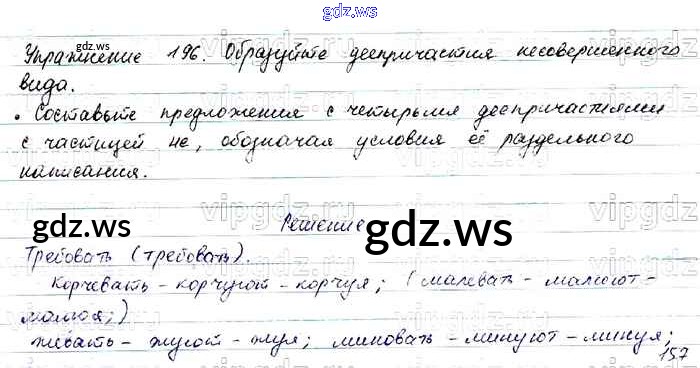 gdz.ws
Упражнение 196. Образуйте деепричастия несовершенного
вида.
• Составьте предложения с четырьмя деепричастиями
с частицей не, обозначая условия её раздельного
написания.
Решение
gdz.ws
gdz.ws
Требовать (требовать).
Корчевать - корчуют - корчуя; (малевать - малюют -
малюя;)
жевать - жуют - жуя; миновать - минуют - минуя;
157